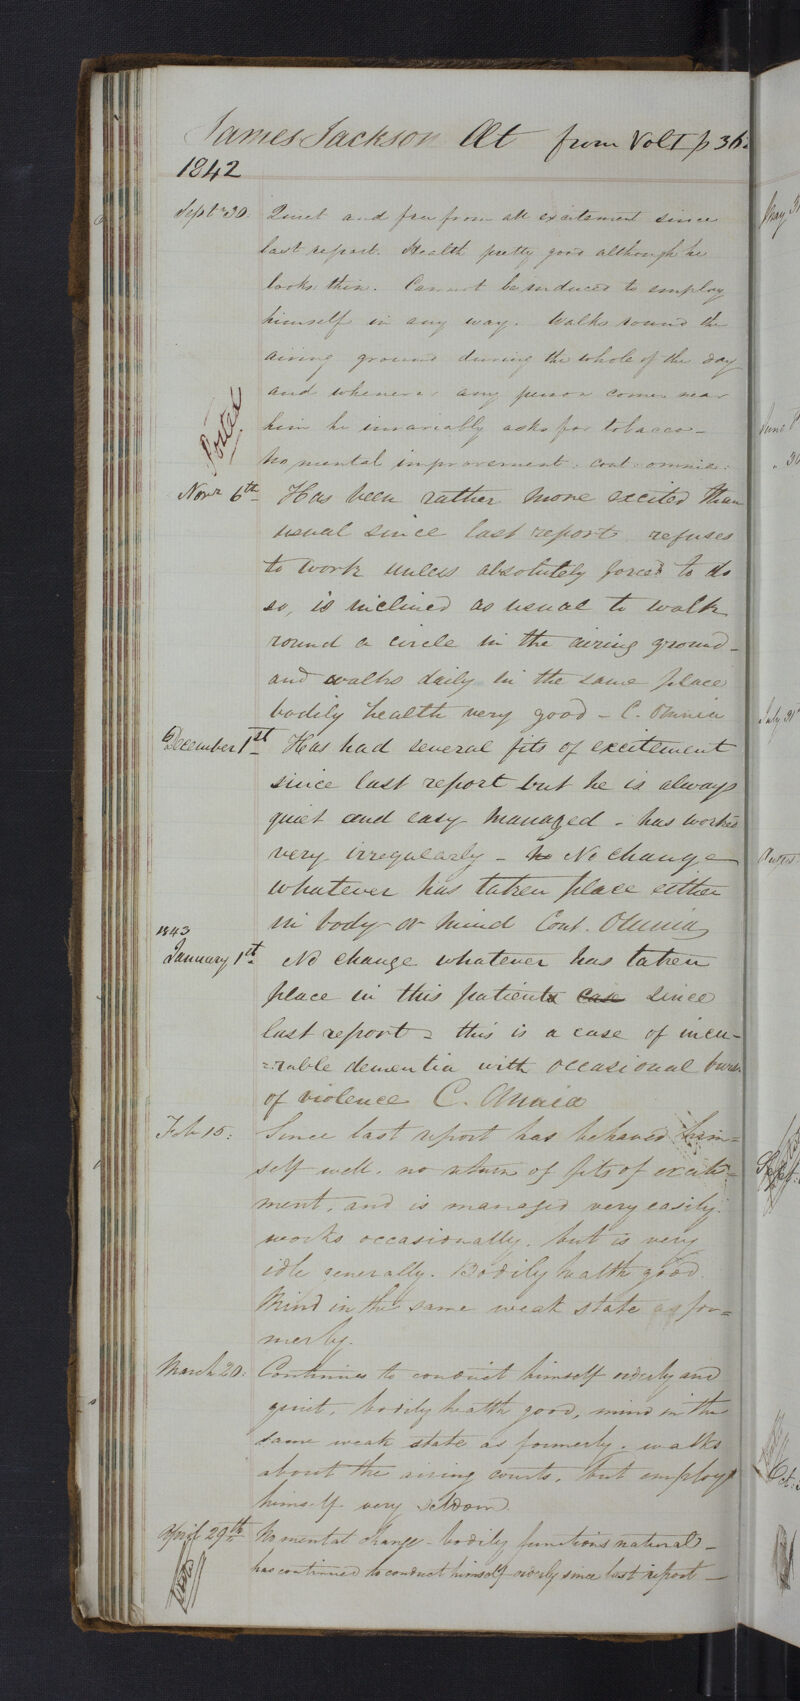 James Jackson Æt from Vol I p 36
1842
Sept 30. Quiet and free from all excitement since
last report. Health pretty good although he
looks thin. Cannot be induced to employ
himself in any way. Walks round the
airing ground during the whole of the day
and whenever any person comes near
him he invariably asks for tobacco –
Posted
No mental improvement. cont. omnia.
Novr 6th Has been rather more excited than
usual since last report, refuses
to work unless absolutely forced to do
so, is inclined as usual to walk
round a circle in the airing ground –
and walks daily in the same place
bodily health very good – C. Omnia
December 1st Has had several fits of excitement
since last report but he is always
quiet and easy managed – has worked
very irregularly – No change
whatever has taken place either
in body or mind Cont. Omnia
1843
January 1st No change whatever has taken
place in this patient case since
last report – this is a case of incu-
=rable dementia with occasional
of violence C. Omnia
Feb 15: Since last report has behaved him=
self well. no return of fits of excite=
ment, and is managed very easily.
works occasionally, but is very
idle generally. Bodily health good.
Mind in the same weak state as for=
merly.
March 20: Continues to conduct himself orderly and
quiet, bodily health good, mind in the
same weak state as formerly. walks
about the airing courts, but employs
himself very seldom
April 29th No mental change – bodily functions natural –
has continued to conduct himself orderly since last report –
Posted
May 31
June
30
July 31
August
Sept:
Oct: